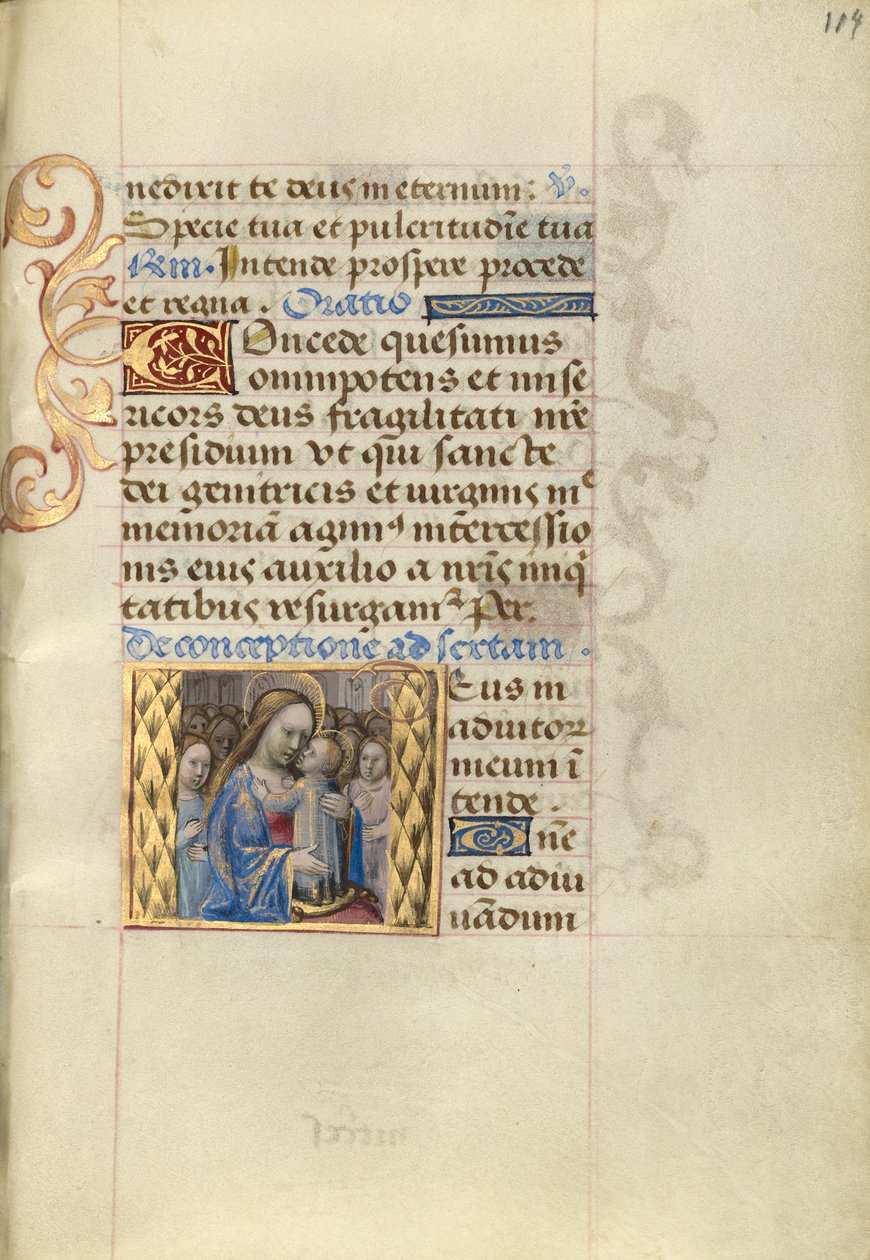 114
nedixit te deus in eternum: V̄.
Specie tua et pulcritudīe tua
Rm̄. Intende prospere procede
et regna. Oratio
Concede quesumus
omnipotens et mise
ricors deus fragilitati nr̄e
presidium vt qui sancte
dei genitricis et uirginis mͨ
memoriā agimꝰ intercessio
nis eius auxilio a nr̄is iniq̄
tatibus resurgamꝰ Per.
De conceptione ad sextam.
Deus in
adiutor
meum ī
tende.
Dn̄e
ad adiu
uādum